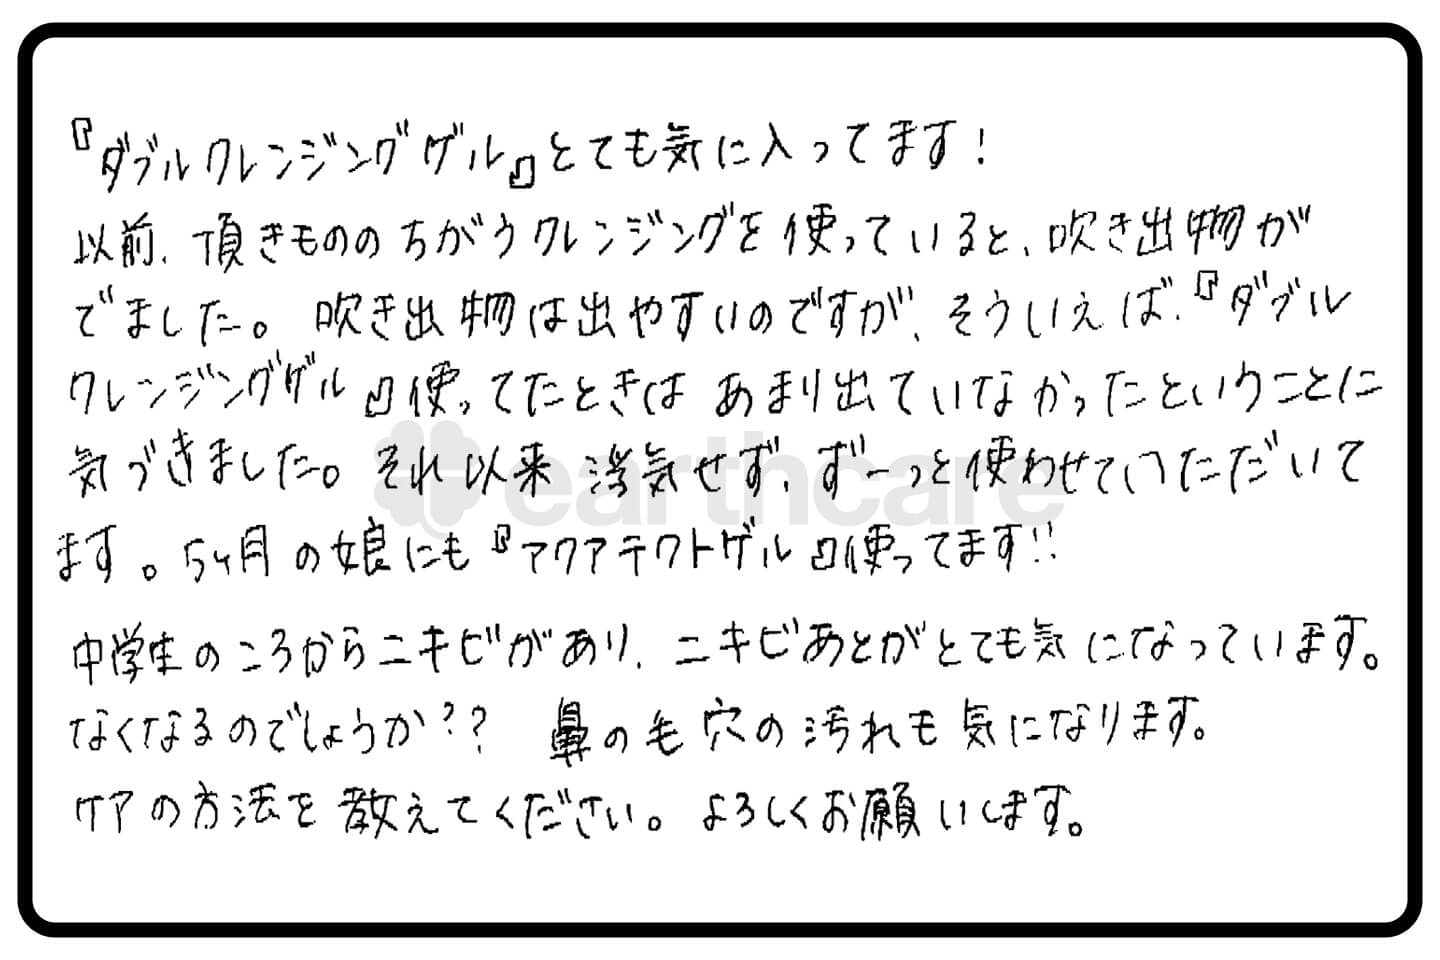 『ダブルクレンジングゲル』とても気に入ってます！
以前、頂きもののちがうクレンジングを使っていると、吹き出物が
でました。吹き出物は出やすいのですが、そういえば、『ダブル
クレンジングゲル』使ってたときはあまり出ていなかったということに
気づきました。それ以来浮気せず、ずーっと使わせていただいて
ます。5ヶ月の娘にも『アクアテクトゲル』使ってます!!
中学生のころからニキビがあり、ニキビあとがとても気になっています。
なくなるのでしょうか??　鼻の毛穴の汚れも気になります。
ケアの方法を教えてください。よろしくお願いします。
earthcare